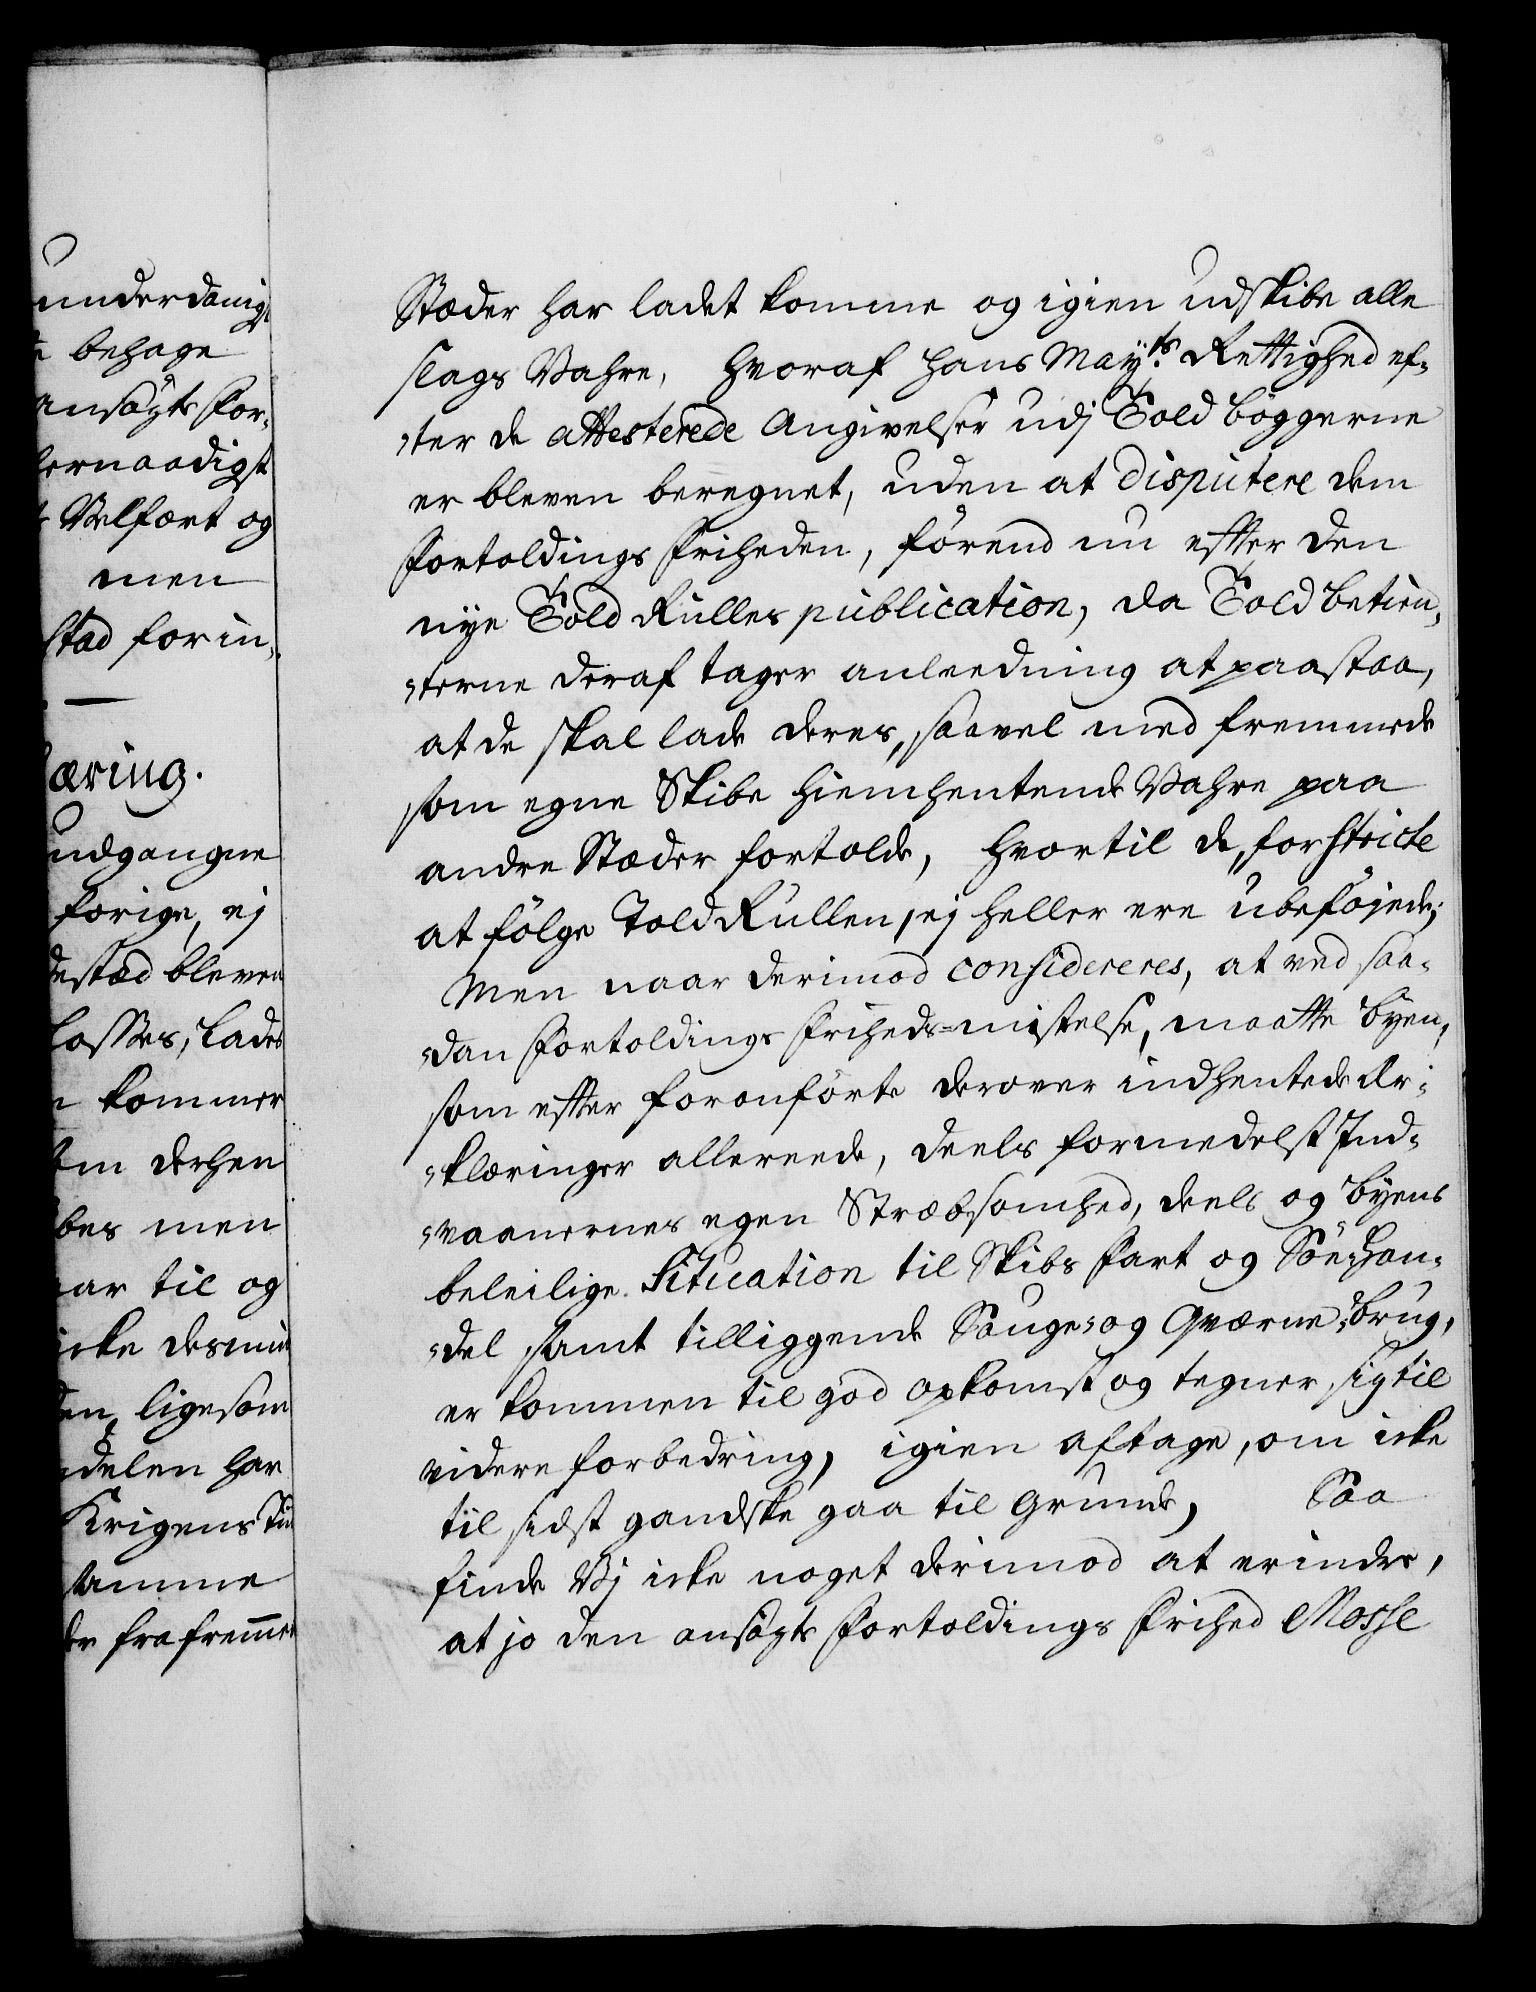 underdanigst
behage
ansögte For-
lernaadigst
Velfært og
men
stad forin-
æring.
udgangne
forige, ej
destæd bleven
losses, lades
kommer
derhen
bes men
ar til og
icke desmin
en, ligesom
delen har
Krigens Tiid
samme
fra fremmet
Stæder har ladet komme og igien udskibe alle
slags Vahre, hvoraf Hans Mayts. Rettighed ef-
-ter de attesterede Angivelser udj Told bøggerne
er bleven beregnet, uden at disputere dem
Fortoldings Friheden, förend nu efter den
nye Told Rulles publication, da Told betien-
-terne deraf tager anleedning at paastaa,
at de skal lade deres, saavel med fremmede
som egne Skibe hiemhentende Vahre paa
andre Stæder fortolde, hvortil de, for stricte
at fölge Told Rullen, ej heller ere ubeföjede;
Men naar derimod considereres, at ved saa-
-dan Fortoldings Friheds-mistelse, maatte byen,
som efter foranförte derover indhentede Er-
-klæringer allereede, deels formedelst Ind-
-vaanernes egen Stræbsomhed, deels og byens
beleilige Situation til Skibs Fart og Söe-han-
-del samt tilliggende Sauge- og Qværne-brug,
er kommen til god opkomst og tegner sig til
videre forbedring, igien aftage, om icke
til sidst gandske gaa til Grunde, Saa
finde Vj icke noget derimod at erindre,
at jo den ansögte Fortoldings Frihed Mosse